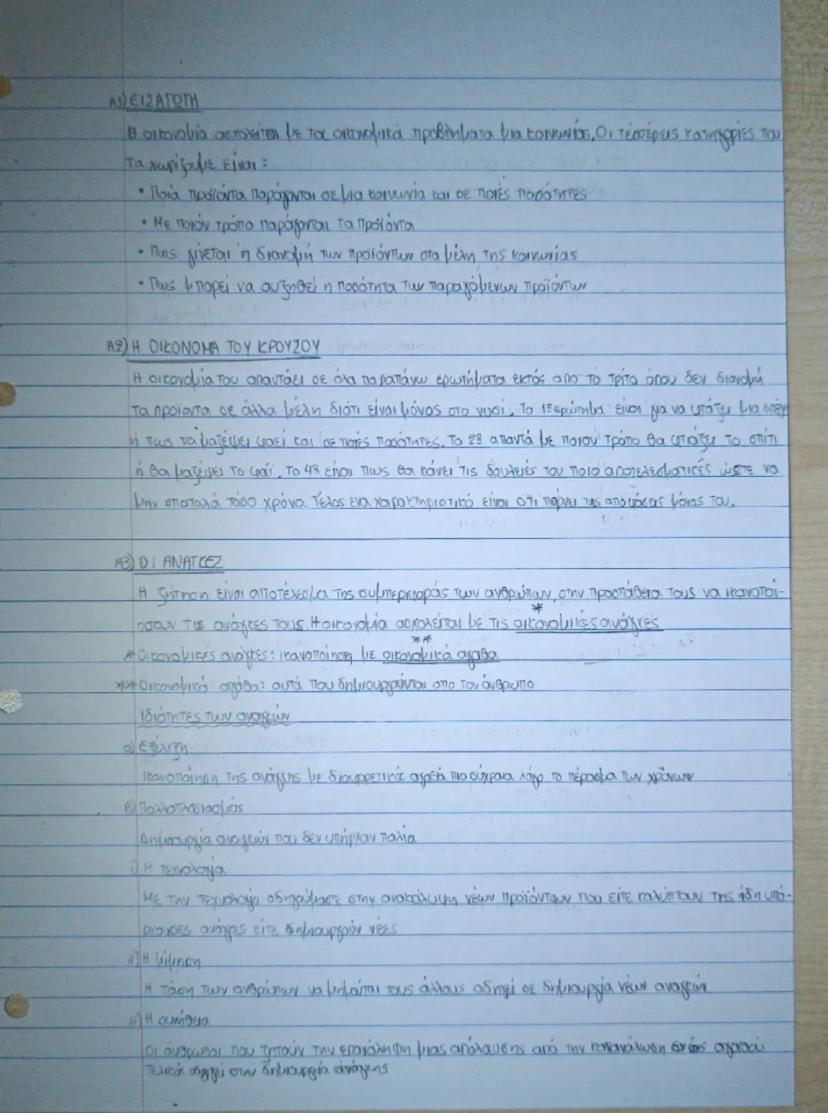 Α1) ΕΙΣΑΓΩΓΗ
Η οικονομία ασχολείται με τα οικονομικά προβλήματα μια κοινωνίας, Οι τέσσερεις κατηγορίες που
τα χωρίζουμε είναι:
• Ποιά προϊόντα παράγονται σε μια κοινωνία και σε ποιές ποσότητες
• Με ποιόν τρόπο παράγονται τα προϊόντα
• Πως γίνεται η διανομή των προϊόντων στα μέλη της κοινωνίας
• Πως μπορεί να αυξηθεί η ποσότητα των παραγόμενων προϊόντων
Α2) Η ΟΙΚΟΝΟΜΑ ΤΟΥ ΚΡΟΥΣΟΥ
Η οικονομία του απαντάει σε όλα παραπάνω ερωτήματα εκτός από το τρίτο όπου δεν διανομή
τα προιοντα σε άλλα μέλη διότι είναι μόνος στο νησί. Το 1ο ερώτημα είναι για να φτάξει μια
ή πως να μαζέψει φαεί και σε ποιές ποσότητες. Το 2ο απαντά με ποιον τρόπο θα φτιάξει το σπίτι
ή θα μαζέψει το φαΐ. Το 4ο είναι πως θα κάνει τις δουλειές του ποιο αποτελεσματικές ώστε να
μην σπαταλά τόσο χρόνο. Τέλος ενα χαρακτηριστικό είναι οτι παίρνει τις αποφάσεις μόνος του.
Α3) ΟΙ ΑΝΑΓΚΕΣ
Η ζήτηση είναι αποτέλεσμα της συμπεριφοράς των ανθρώπων, στην προσπάθεια τους να ικανοποι-
ήσουν τις ανάγκες τους. Η οικονομία ασχολείται με τις οικονομικές ανάγκες *
* Οικονομικες ανάγκες: ικανοποίηση με οικονομικά αγαθα **
** Οικονομικά αγάθα: αυτά που δημιουργούνται απο τον άνθρωπο
Ιδιότητες των αναγκών
α) Εξέλιξη
Ικανοποίηση της ανάγκης με διαφορετικά αγαθά πιο σύχρονα λόγο το πέρασμα των χρόνων
β) Πολλαπλασιασμός
Δημιουργία αναγκών που δεν υπήρχαν παλιά
i) Η τεχνολογία
Με την τεχνολογία οδηγούμαστε στην ανακάλυψη νέων προϊόντων που είτε καλύπτουν της ήδη υπά-
ρχουσες ανάγκες είτε δημιουργούν νέες
ii) Η μίμηση
Η τάση των ανθρώπων να μιμείται τους άλλους οδηγεί σε δημιουργία νέων αναγκών
iii) Η συνήθεια
Οι άνθρωποι που ζητούν την επανάληψη μιας απόλαυσης από την κατανάλωση ενός αγαθού
τελικά οδηγεί στην δημιουργία ανάγκης